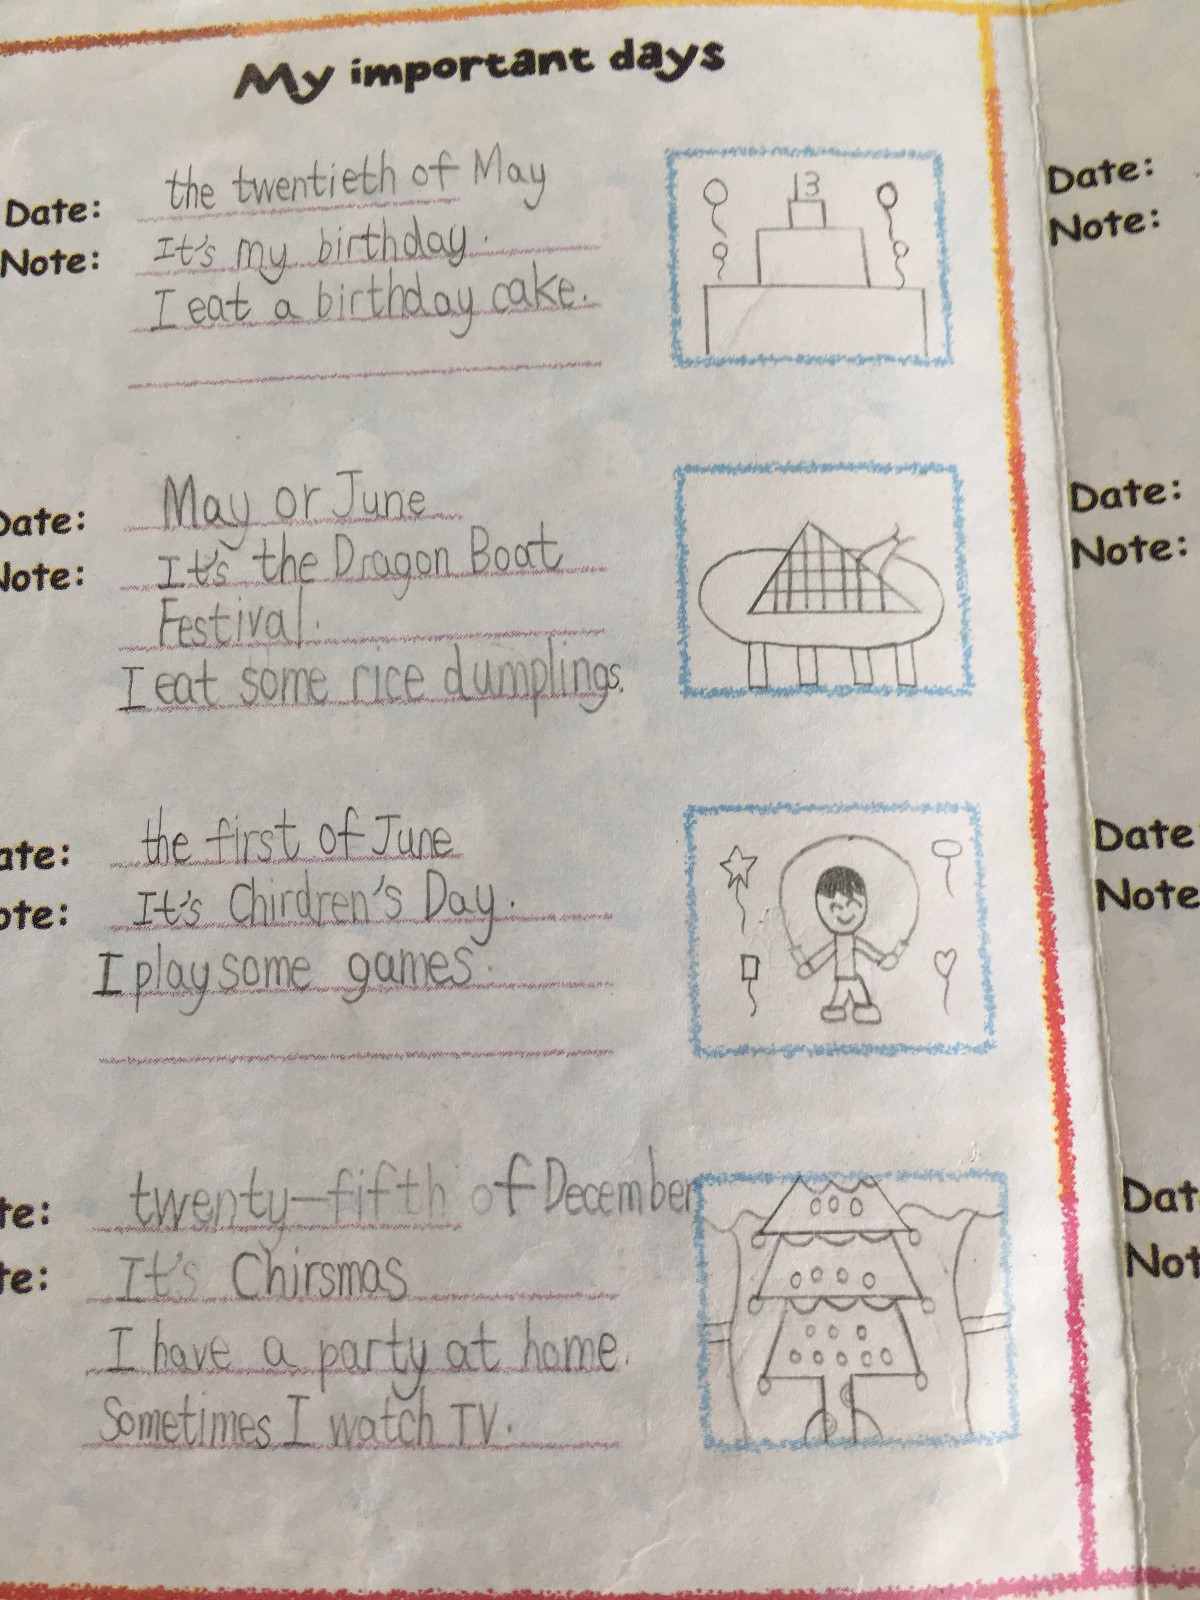 My important days
Date: the twentieth of May
Note: It's my birthday.
I eat a birthday cake.
13
Date: May or June
Note: It's the Dragon Boat
Festival.
I eat some rice dumplings.
ate: the first of June
ote: It's Chirdren's Day.
I play some games.
te: twenty-fifth of December
te: It's Chirsmas
I have a party at home.
Sometimes I watch TV.
Date:
Note:
Date:
Note:
Date
Note
Dat
Not